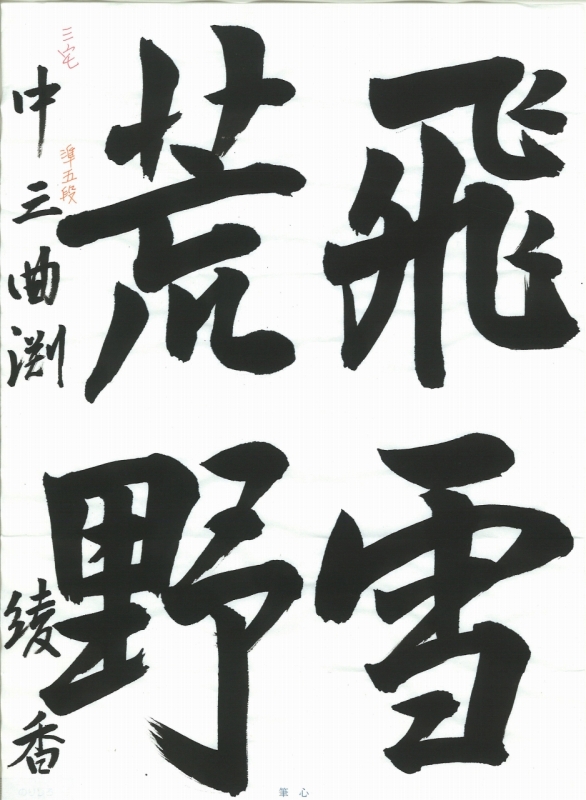 飛雪
荒野
中三曲渕綾香
三宅
準五段
筆心